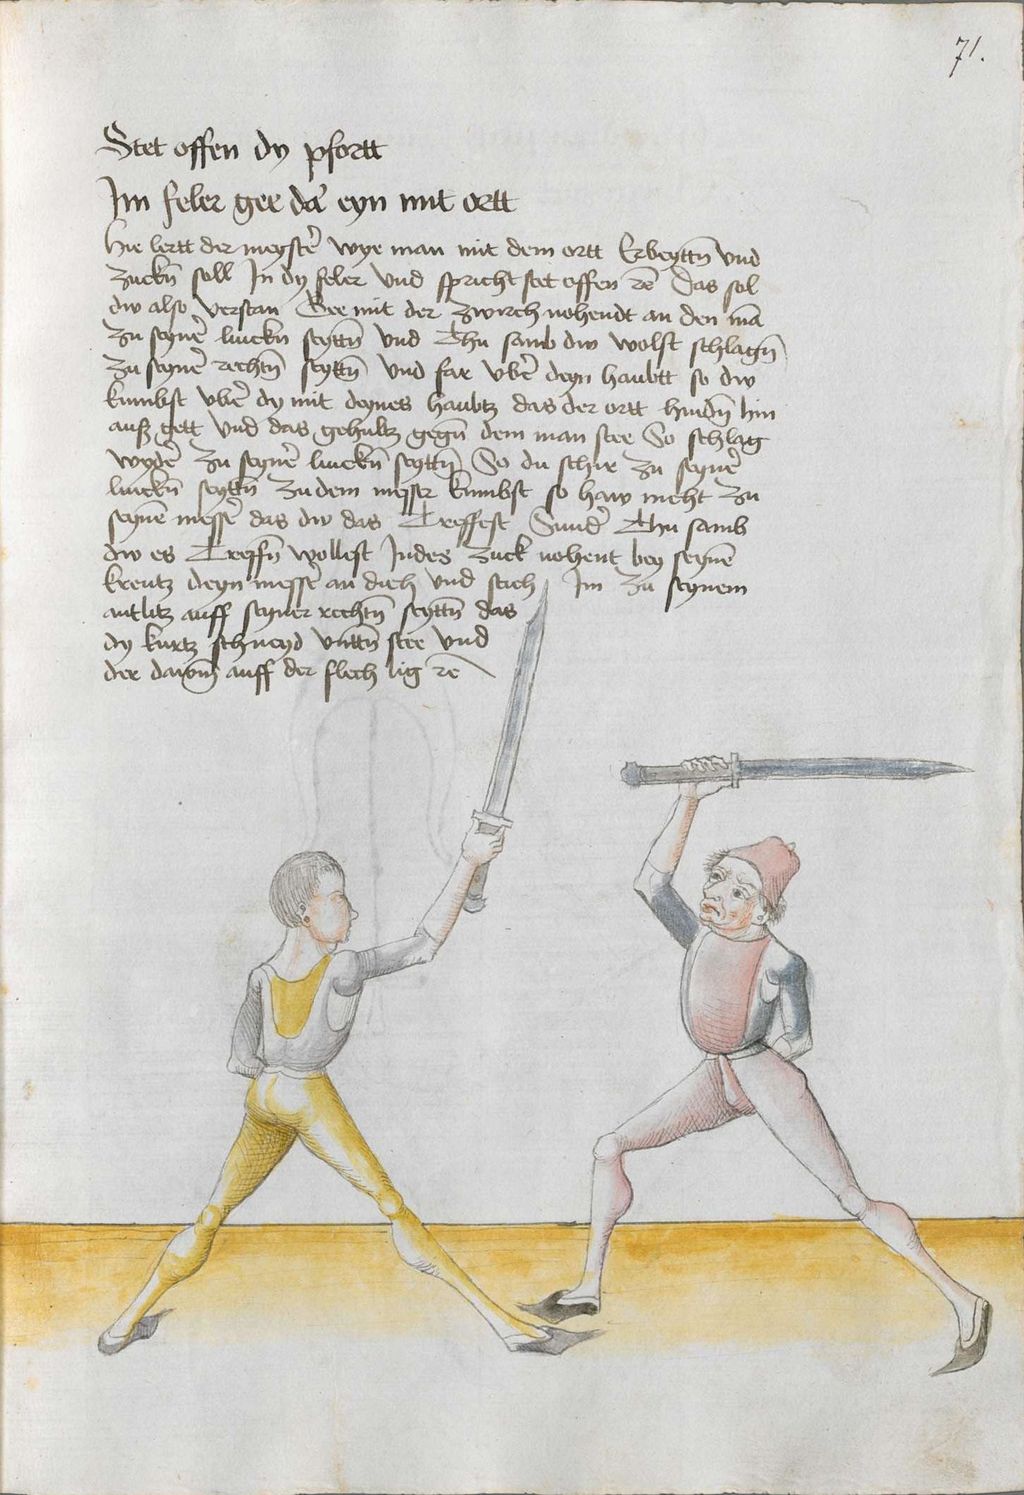 71.
Stet offen dy pfortt
Im feler gee dar̄ eyn mit ortt
Hie lertt der meyster̄ wye man mit dem ortt Erbeyttn̄ vnd
zuckn̄ soll In dy feler vnd spricht stet offen rc̄ Das sol
dw also verstan Gee mit der zwirch nohendt an den ma͞
zu seyner̄ linckn̄ seyttn̄ vnd Thu samb dw wolst schlagn̄
zu seyner̄ rechtn̄ seyttn̄ vnd far vber̄ deyn haubtt so dw
kumbst vber̄ dy mit deynes haubtz das der ortt hindn̄ hin
auß gett vnd das gehultz gegn̄ dem man stee So schlag
wyder̄ zu seyner̄ linckn̄ seyttn̄ So du schir zu seyner̄
linckn̄ seyttn̄ zu dem messer kumbst so haw nicht zu
seyne͞ messer̄ das dw das Treffest Sunder̄ Thu samb
dw es Treffn̄ wollest Indes zuck nohent bey seyne͞
kreutz deyn messer̄ an dich vnd stich Im zu seynem
antlitz auff seyner rechtn̄ seyttn̄ das
dy kurtz schneyd vnttn̄ stee vnd
der dawm͞ auff der flech lig rc̄